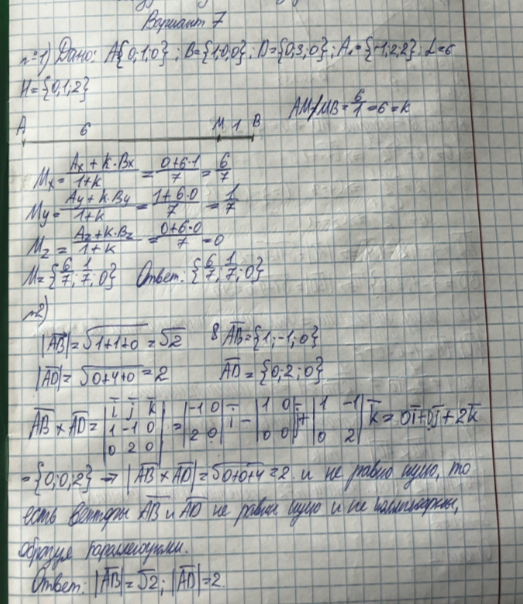 Вариант 7
n°1) Дано: A{0;1;0}; B={1;0;0}; D={0;3;0}; A₁={-1;2;2}; L=6
H={0;1;2}
AM/MB = 6/1 = 6 = k
A 6 M 1 B
Mx = (Ax + k·Bx)/(1+k) = (0+6·1)/7 = 6/7
My = (Ay + k·By)/(1+k) = (1+6·0)/7 = 1/7
Mz = (Az + k·Bz)/(1+k) = (0+6·0)/7 = 0
M = {6/7; 1/7; 0} Ответ: {6/7; 1/7; 0}
n2)
|AB| = √1+1+0 = √2 8 AB = {1; -1; 0}
|AD| = √0+4+0 = 2 AD = {0; 2; 0}
AB × AD = |i j k; 1 -1 0; 0 2 0| = |-1 0; 2 0| i - |1 0; 0 0| j + |1 -1; 0 2| k = 0i + 0j + 2k
= {0; 0; 2} → |AB × AD| = √0+0+4 = 2 и не равно нулю, то
есть векторы AB и AD не равны нулю и не коллинеарны,
образуя параллелограмм.
Ответ: |AB| = √2; |AD| = 2